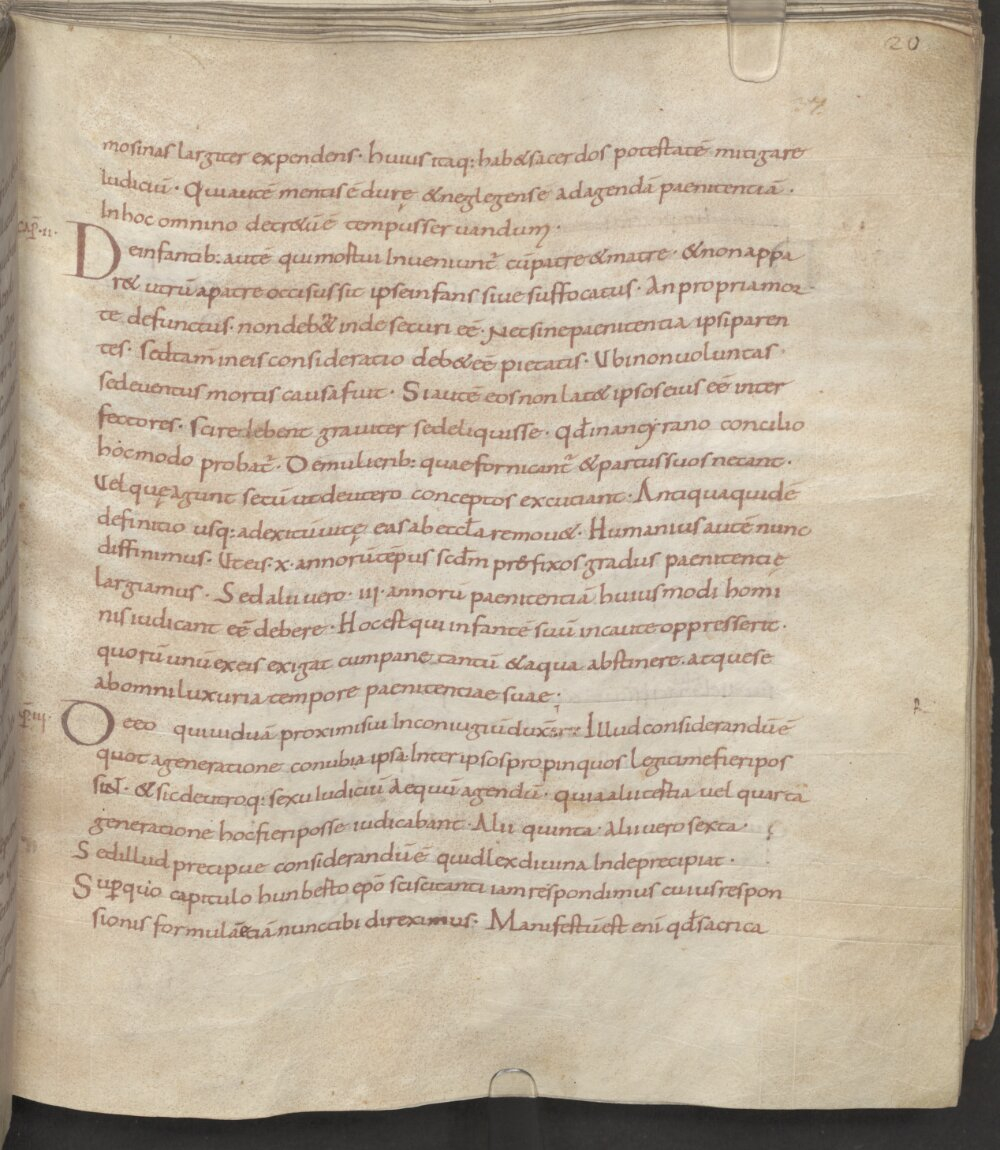 20
37
mosinas largiter expendens· huius itaq: hab& sacerdos potestatē mitigare
Iudiciū· Qui autē mentis ē durę & neglegens ē ad agendā paenitentiā·
In hoc omnino decr&ū ē tempus ser uandum·
cap̄·II· De infantib: autē qui mostui Inueniunt̄ cū patre & matre· & non appa
r& utrū a patre occisus sit ipse infans siue suffocatus· An propria mor
te defunctus· non deb& inde securi eē· Nec sine paenitentia ipsi paren
tes· sed tam̄ in eis consideratio deb& eē pietatis· Ubi non uoluntas·
sed euentus mortis causa fuit· Si autē eos non lat& ipsos eius eē inter
fectores· scire debent grauiter se deliquisse· qđ in ancyrano concilio
hoc modo probat̄· De mulierib: quae fornicant̄ & partus suos necant·
Vel quę agunt secū ut de utero conceptos excutiant· Antiqua quidē
definitio usq: ad exitū uitę eas ab eccl̄a remou&· Humanius autē nunc
diffinimus· Ut eis·x·annorū tēpus scđm prefixos gradus paenitentię
largiamus· Sed alii uero·III·annorū paenitentiā huius modi homi
nis iudicant eē debere· Hoc est qui infantē suū incaute oppresserit·
quorū unū ex eis exigat cum pane tantū & aqua abstinere· atque se
ab omni luxuria tempore paenitentiae suae·
ap̄·III· De eo qui uiduā proximi sui In coniugiū duxerit Illud considerandū ē
quot a generatione conubia ipsa· Inter ipsos propinquos legitime fieri pos
sint· & sic de utroq: sexu Iudiciū Aequū agendū· quia alii tertia uel quarta
generatione hoc fieri posse iudicabant· Alii quinta Alii uero sexta·
Sed illud precipue considerandū ē quid lex diuina Inde precipiat·
Sup quo capitulo hunberto ep̄o sciscitanti iam respondimus cuius respon
sionis formulā etiā nunc tibi direximus· Manifestū est eni qđ sacrica